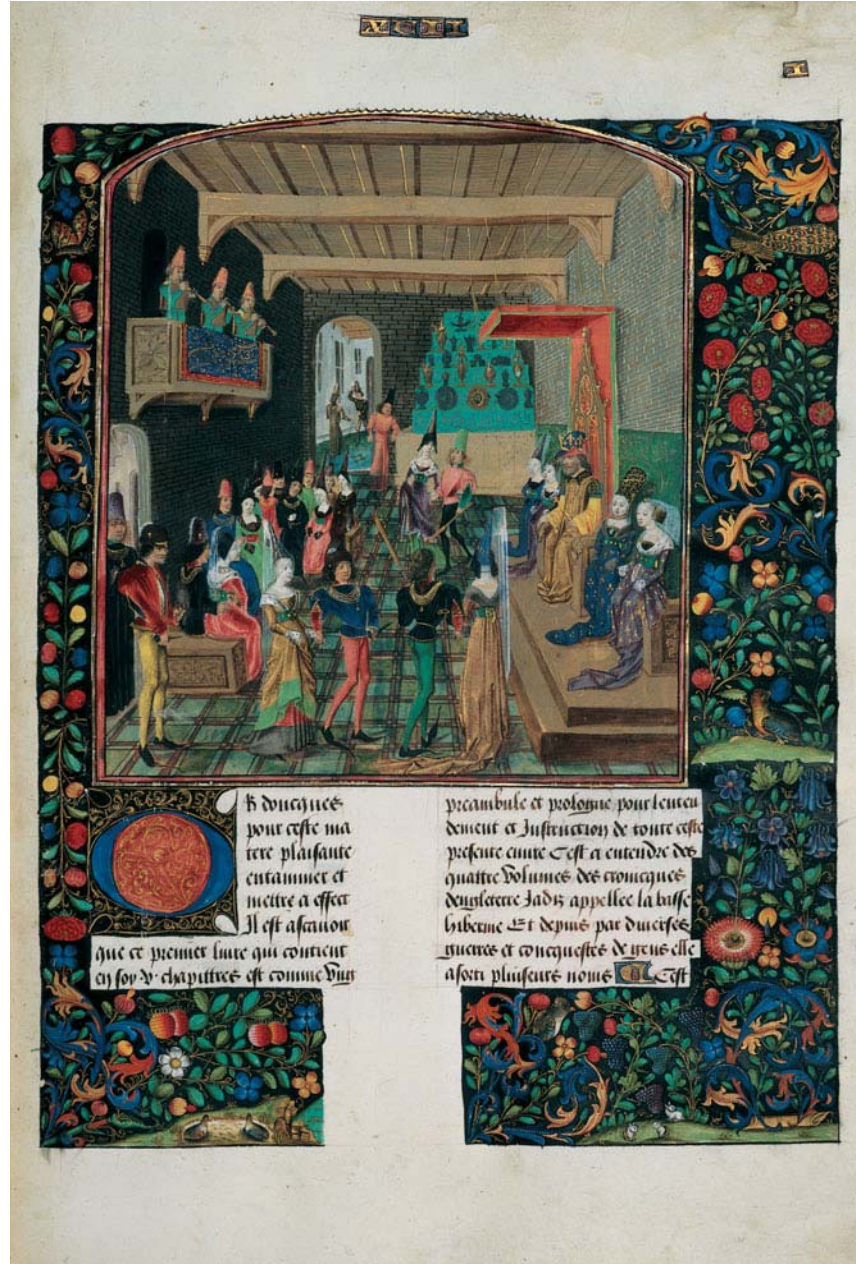 XCII
I
Or doncques
pour ceste ma
tere plaisante
entammer et
mettre a effect
Il est ascauoir
que ce premier liure qui contient
en soy v chapittres est comme vng
preambule et prologue pour lenten
dement et Instruction de toute ceste
presente euure Cest a entendre des
quattre volumes des cronicques
dengleterre Jadis appellee la basse
hibernie Et depuis par diuerses
guerres et concquestes de gens elle
a sorti pluiseurs noms Cest